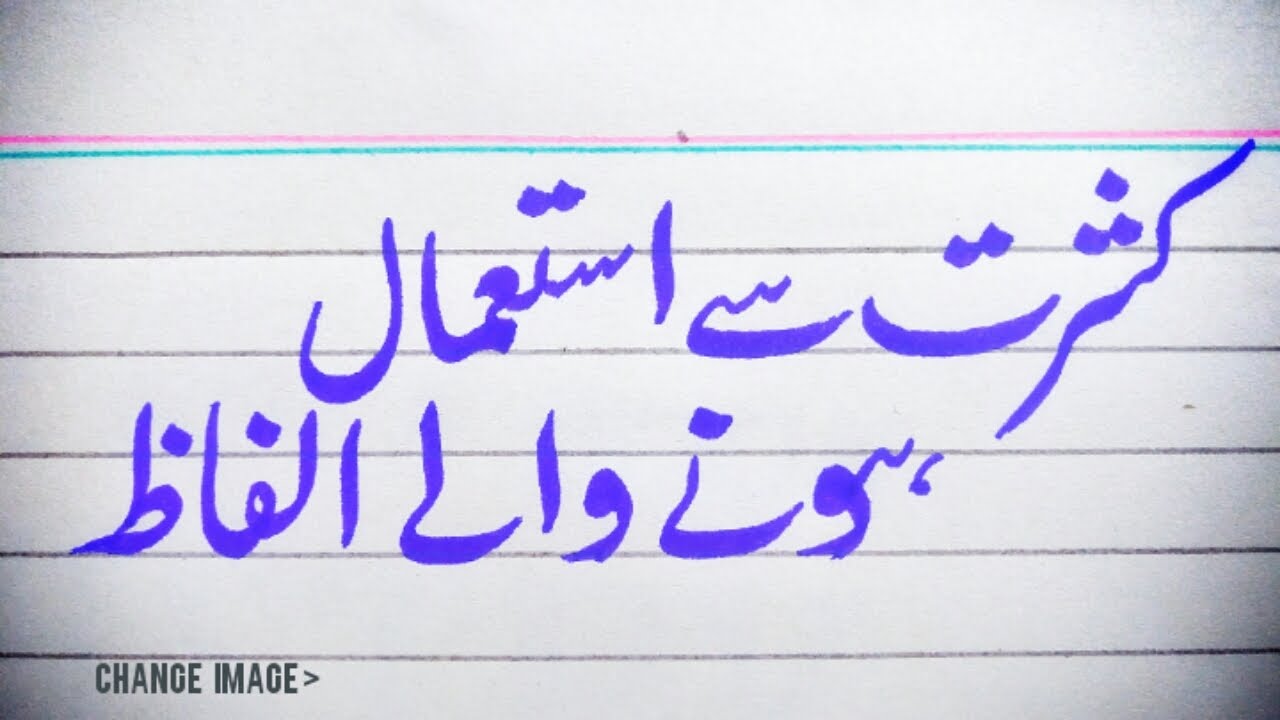 کثرت سے استعمال
ہونے والے الفاظ
CHANGE IMAGE>